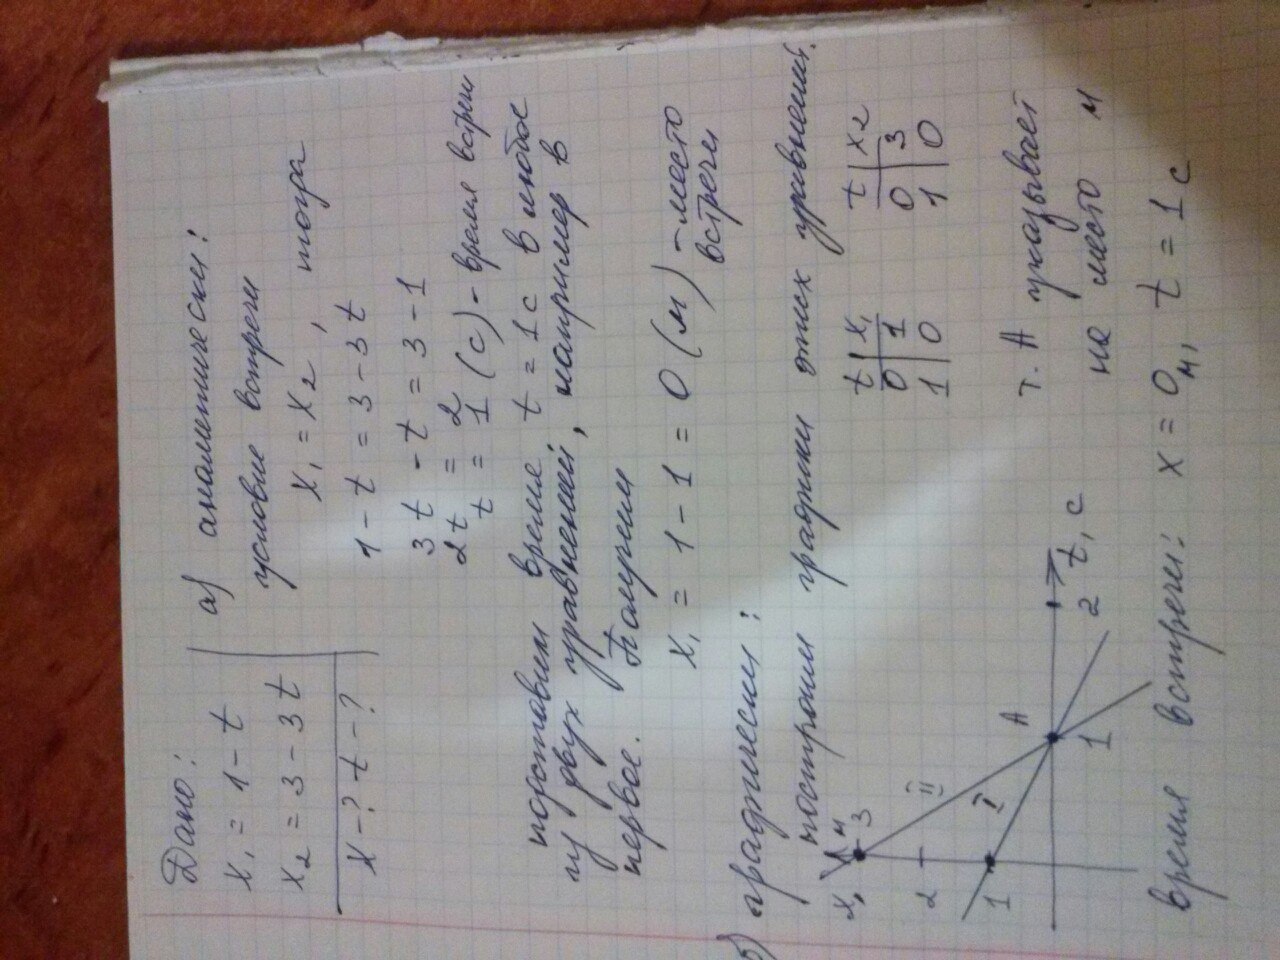 Дано:
x₁ = 1 - t
x₂ = 3 - 3t
x - ? t - ?
а) аналитически:
условие встречи
x₁ = x₂, тогда
1 - t = 3 - 3t
3t - t = 3 - 1
2t = 2
t = 1 (с) - время встречи
подставим время t = 1 с в любое
из двух уравнений, например в
первое. Получим
x₁ = 1 - 1 = 0 (м) - место
встречи
б) графически:
построим графики этих уравнений.
t | x₁
0 | 1
1 | 0
t | x₂
0 | 3
1 | 0
x, м
3
2
1
I
II
A
1
2
t, с
т. А указывает
на место и
время встречи: x = 0 м, t = 1 с